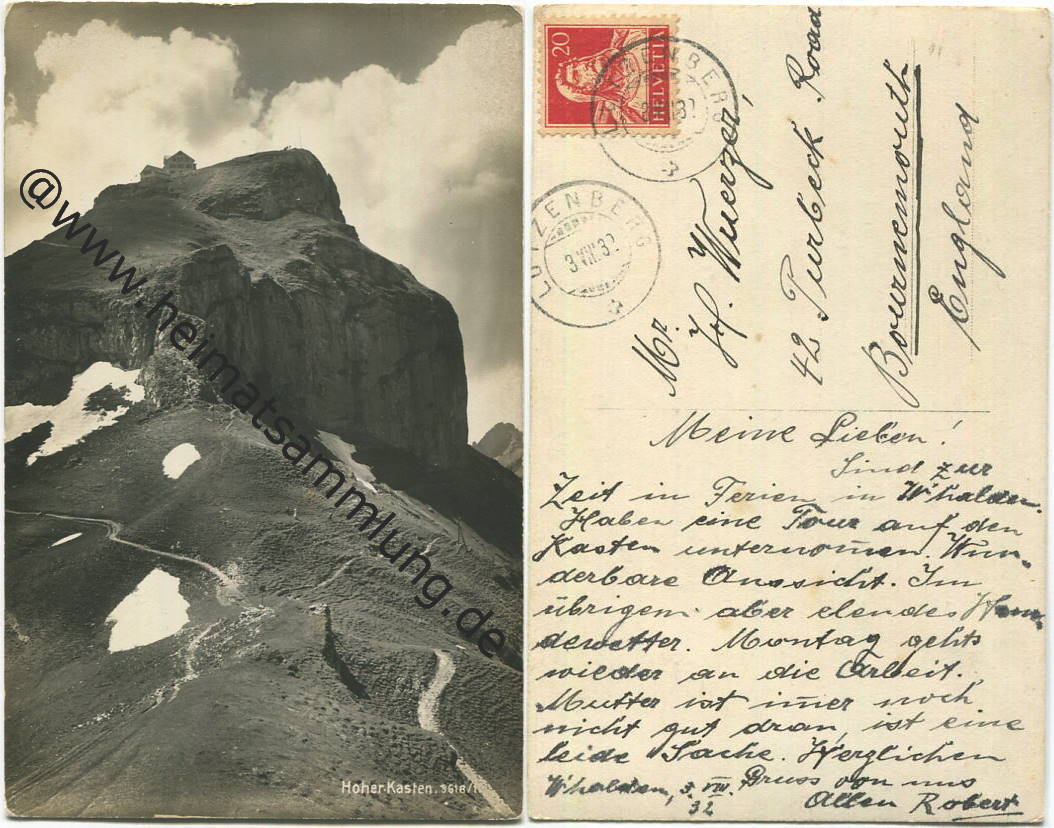 @www.heimatsammlung.de
Hoher Kasten. 3618/1
20
HELVETIA
LUTZENBERG
LUTZENBERG
3.VIII.32
Mr.
Jos. Wuerzer
42 Purbeck Road
Bournemouth
England
Meine Lieben!
Sind zur
Zeit in Ferien in W'halden.
Haben eine Tour auf den
Kasten unternom̅en. Wun-
derbare Aussicht. Im
übrigem aber elendes Hun-
dewetter. Montag gehts
wieder an die Arbeit.
Mutter ist im̅er noch
nicht gut dran, ist eine
leide Sache. Herzlichen
Gruss von uns
Allen Robert
W'halden, 3. VIII. 32